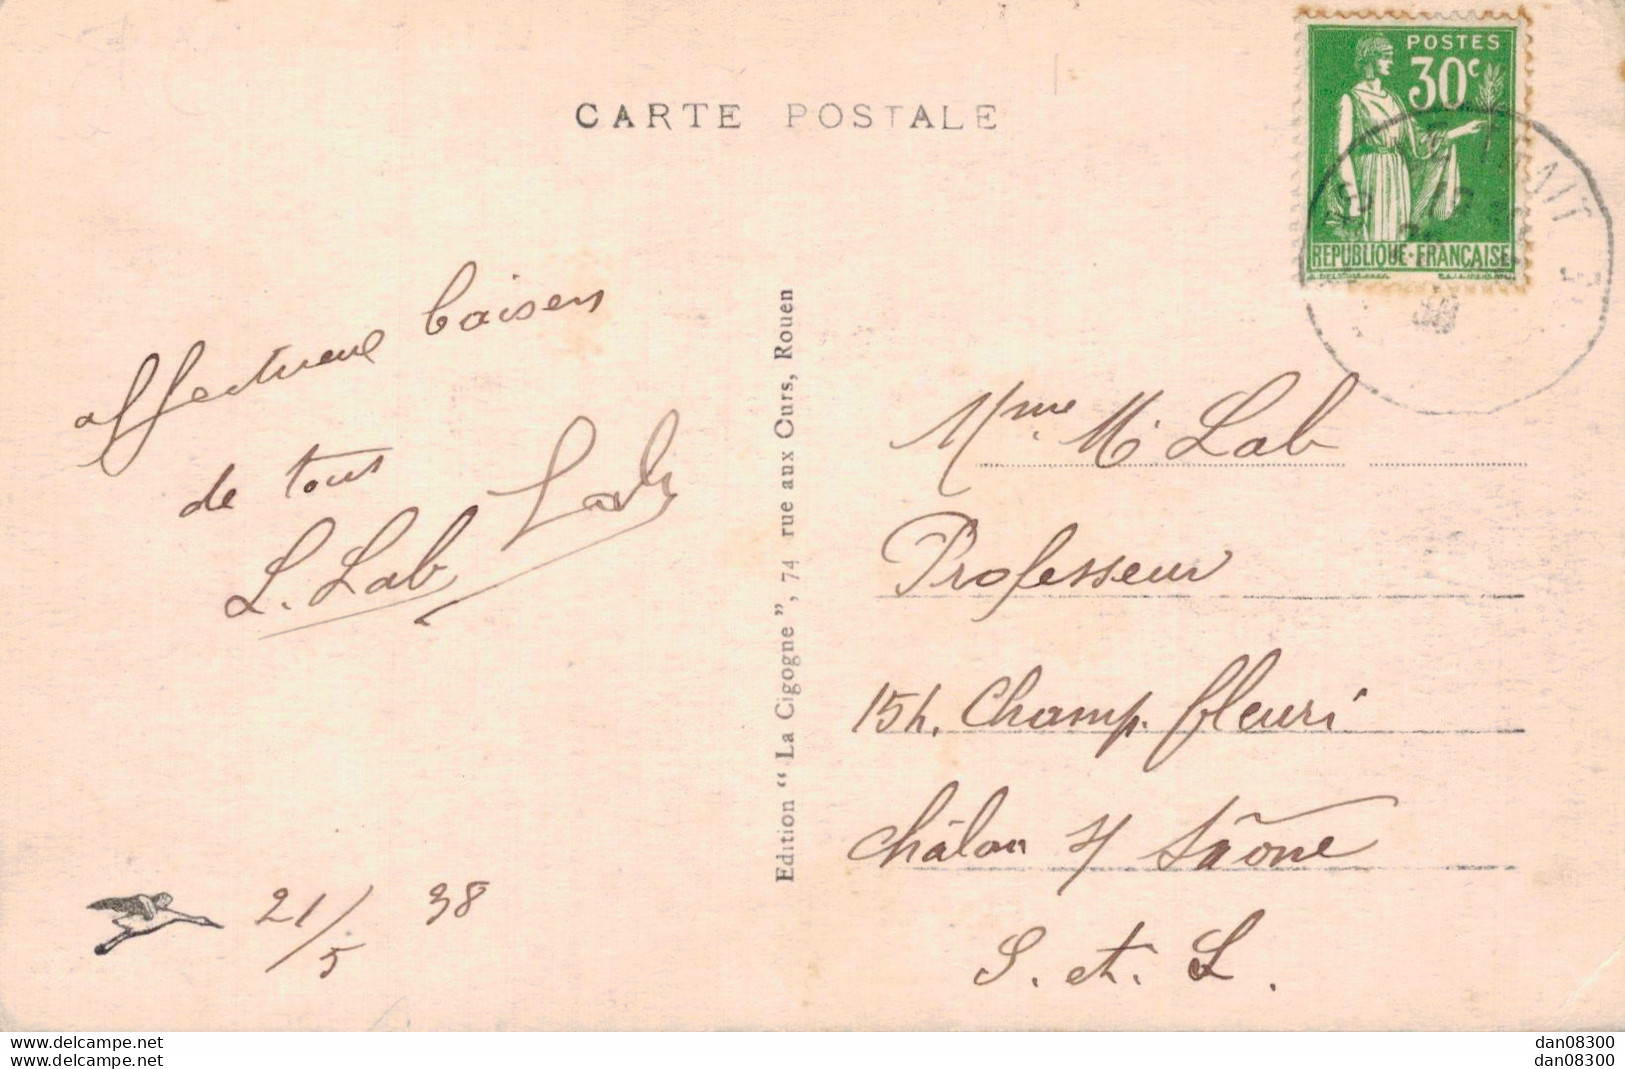 CARTE POSTALE
POSTES
30c
REPUBLIQUE·FRANÇAISE
38
affectueux baisers
de tous
L. Lab
Edition “ La Cigogne ”, 74 rue aux Ours, Rouen
Mme M. Lab
Professeur
15h. Champ. fleuri
Châlon s/ Saône
S. et. L.
21/5 38
www.delcampe.net
www.delcampe.net
dan08300
dan08300